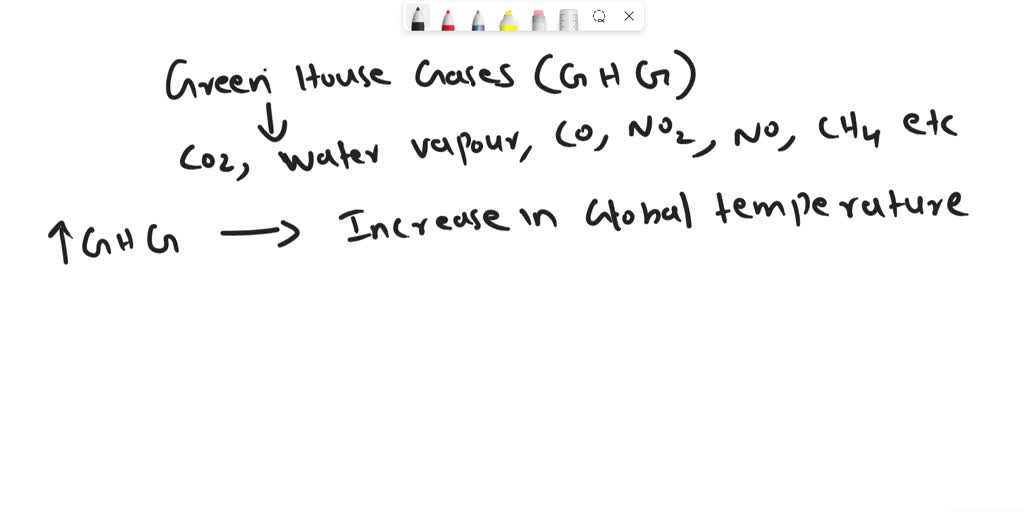 Green House Gases (GHG)
CO2, Water vapour, CO, NO2, NO, CH4 etc
↑GHG → Increase in Global temperature